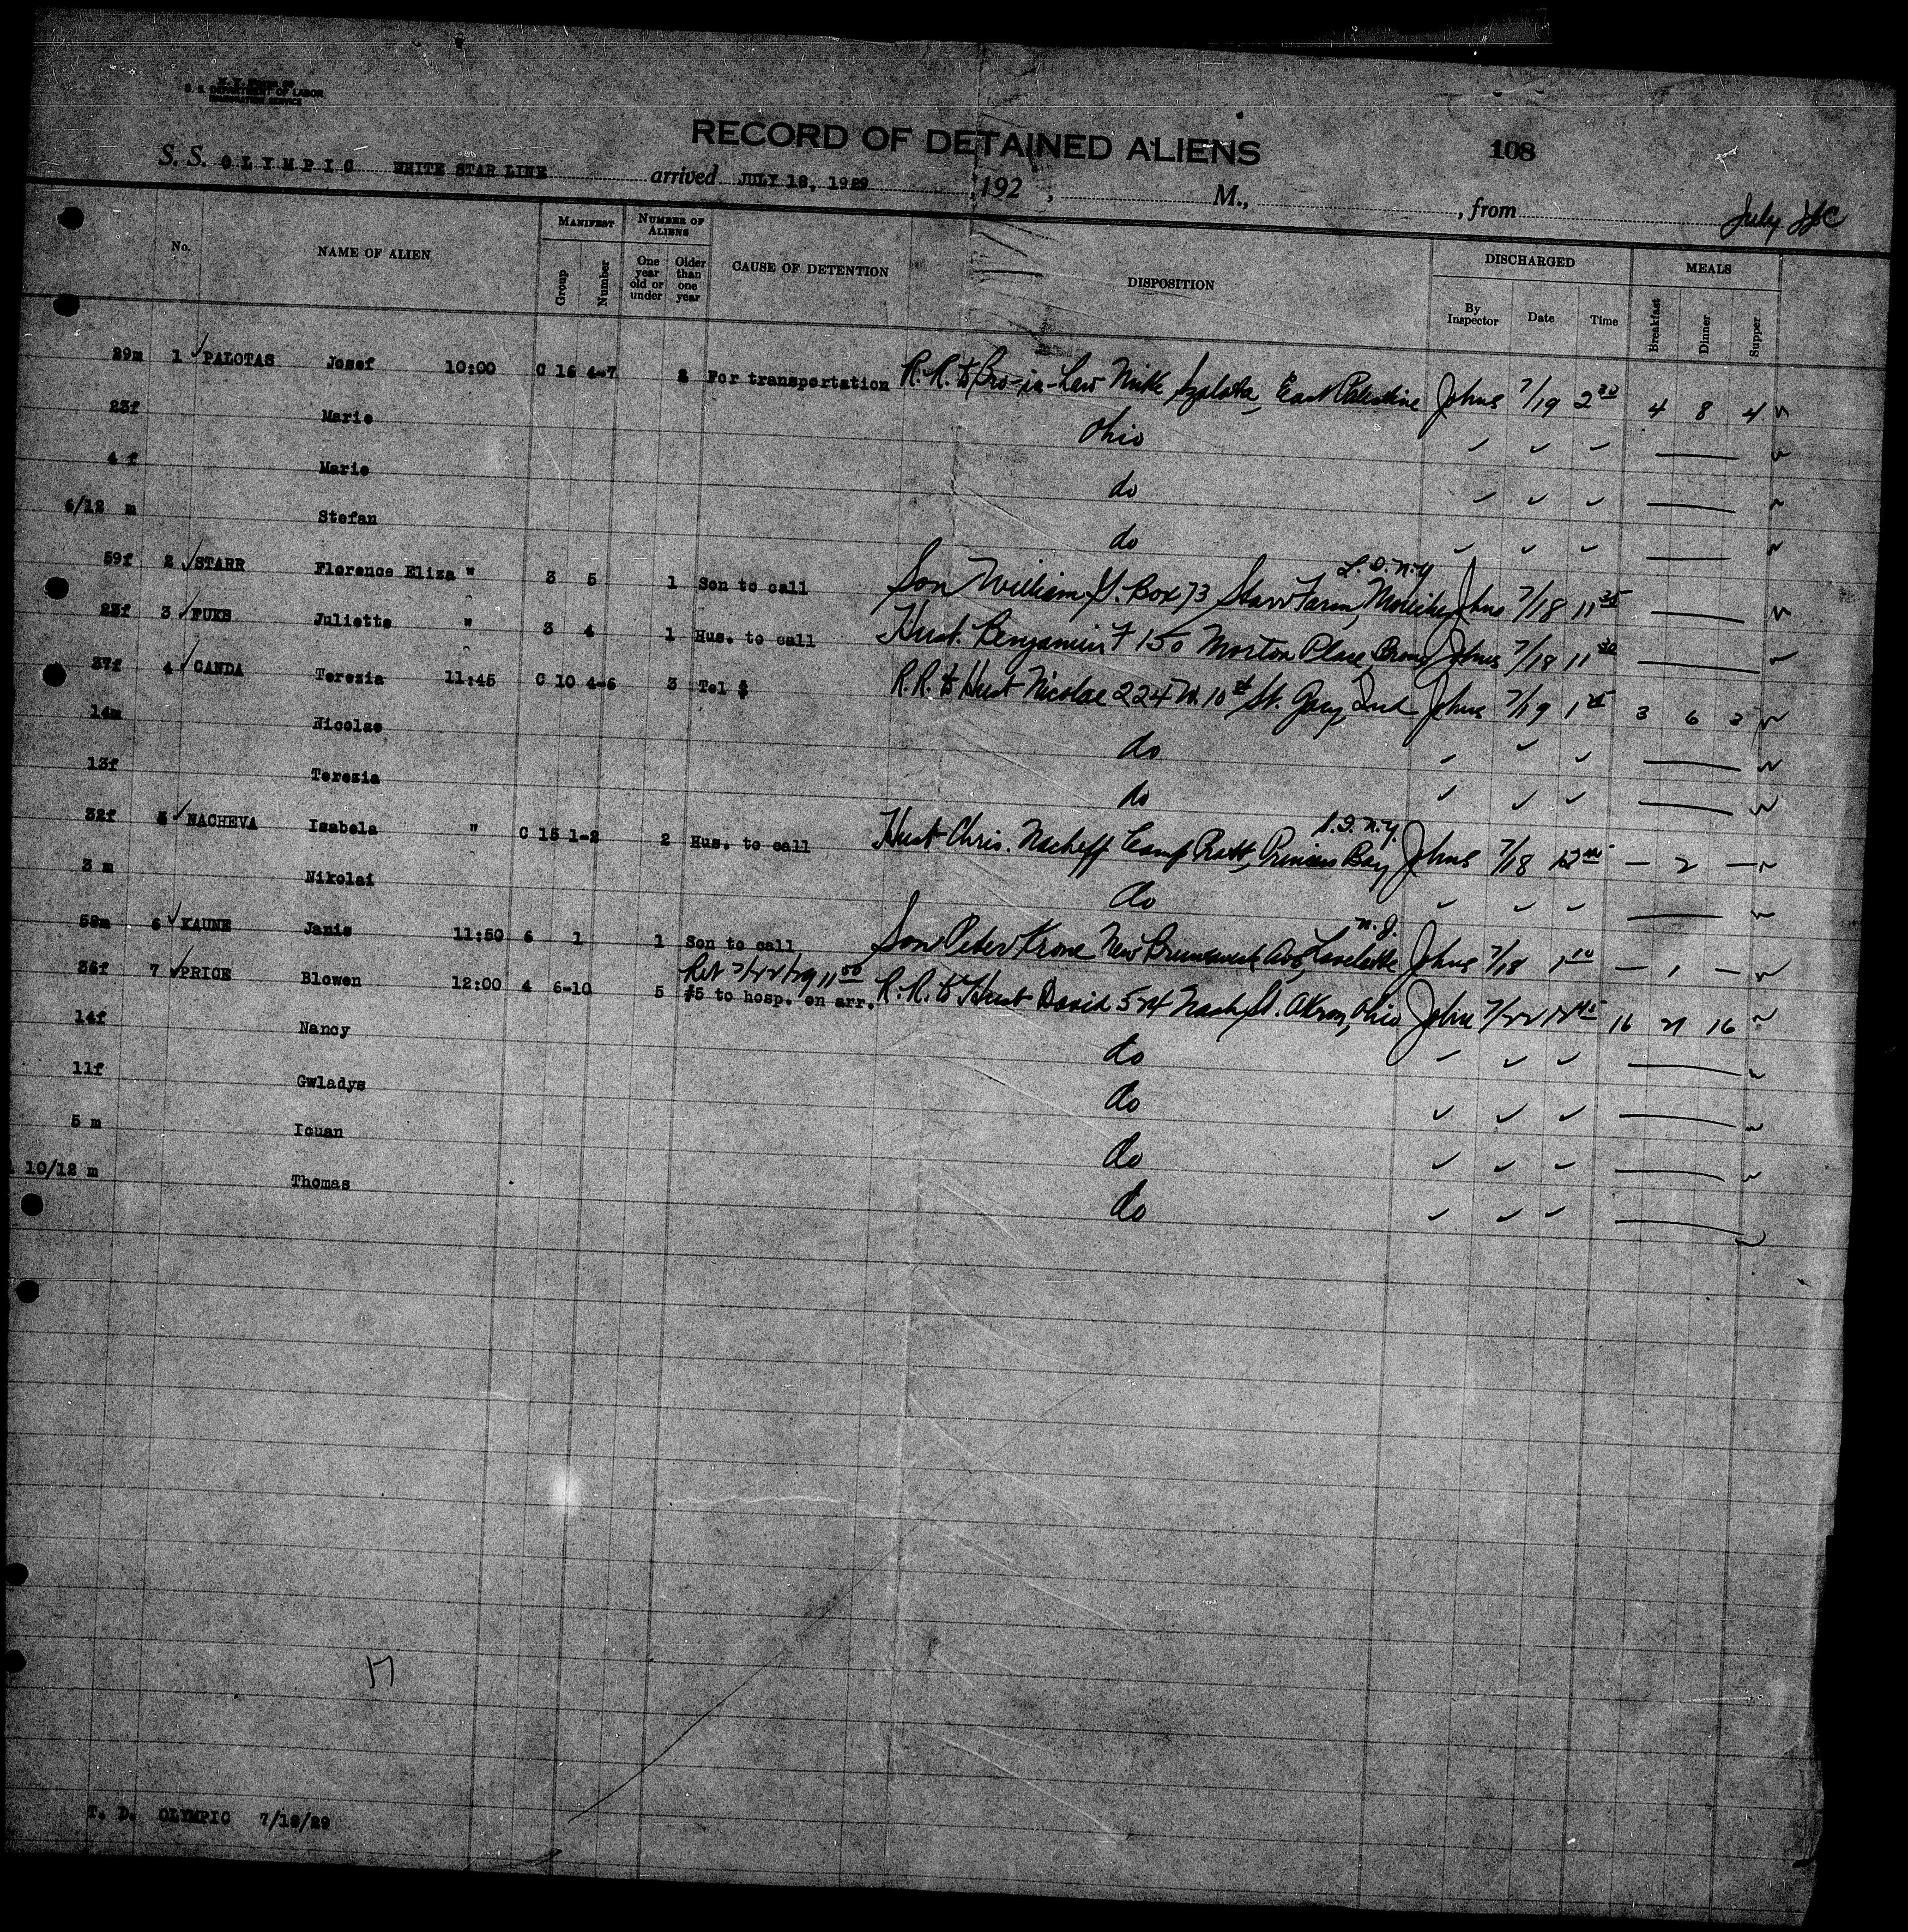 U. S. DEPARTMENT OF LABOR
IMMIGRATION SERVICE
RECORD OF DETAINED ALIENS 108
S. S. OLYMPIC WHITE STAR LINE arrived JULY 18, 1929 192 , M., , from
July
No. NAME OF ALIEN MANIFEST Group Number NUMBER OF ALIENS One year old or under Older than one year CAUSE OF DETENTION DISPOSITION DISCHARGED By Inspector Date Time MEALS Breakfast Dinner Supper
29m 1 PALOTAS Josef 10:00 C 16 4-7 For transportation R.R. to Bro-in-Law Mike Szalota, East Palestine Johns 7/19 2 30 4 8 4
23f Marie Ohio
4 f Marie do
6/12 m Stefan do
L.I. N.Y.
59f 2 STARR Florence Eliza " 3 5 1 Son to call Son William G. Box 73 Starr Farm, Johns 7/18 11 35
23f 3 FUKS Juliette " 3 4 1 Hus. to call Husb. Benjamin F 150 Morton Place, Bronx Johns 7/18 11 30
37f 4 CANDA Terezia 11:45 C 10 4-6 3 Tel $ R.R. to Husb Nicolae 224 W. 10th St. Gary, Ind Johns 7/19 3 6 3
14m Nicolae do
13f Terezia do
S.I. N.Y.
32f 5 NACHEVA Isabela " C 15 1-2 2 Hus. to call Husb Chris. Nacheff Camp Pratt, Princess Bay Johns 7/18 — 2 —
3 m Nikolai do
N.J.
58m 6 KAUNE Janis 11:50 6 1 1 Son to call Son Peter Krone New Brunswick Ave, Johns 7/18 1 10 — 1 —
Ret 7/22/29 11 50
36f 7 PRICE Blowen 12:00 4 6-10 5 #5 to hosp. on arr. R.R. to Husb David 524 Nash St. Akron, Ohio Johns 7/22 16 21 16
14f Nancy do
11f Gwladys do
5 m Iouan do
10/12 m Thomas do
17
T. D. OLYMPIC 7/18/29